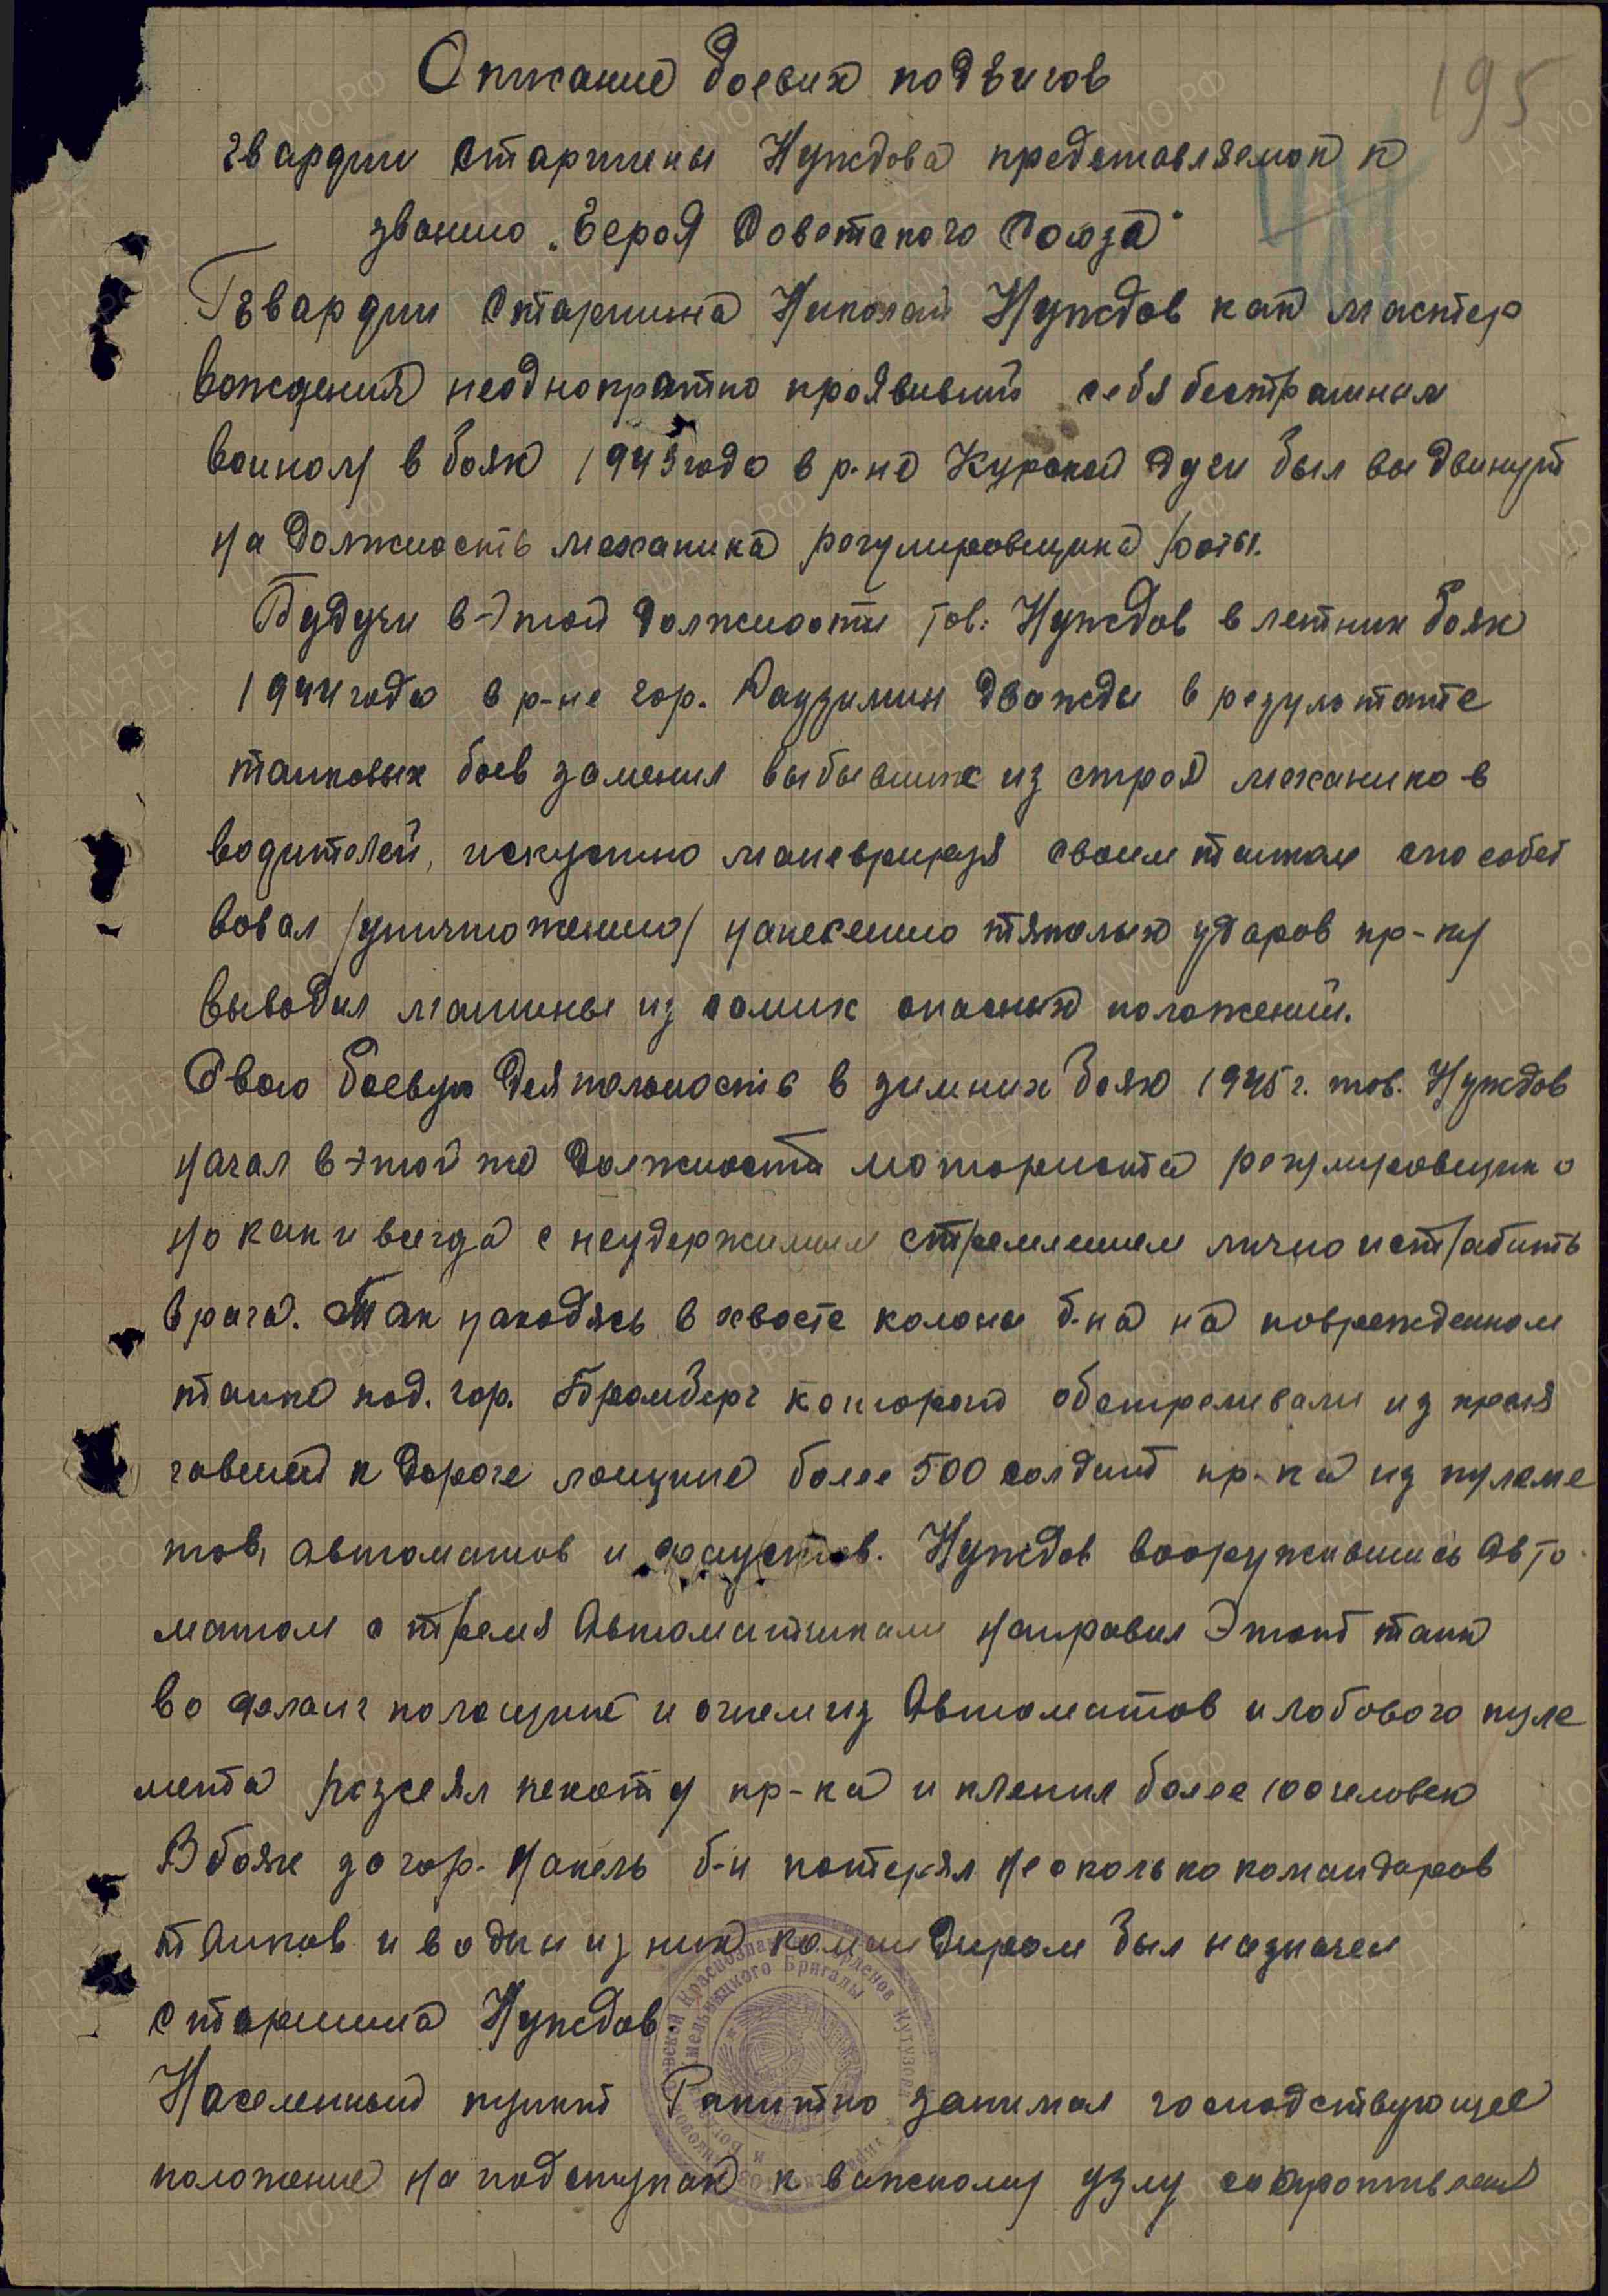 195
Описание боевых подвигов
гвардии старшины Нуждова представляемого к
званию „Героя Советского Союза"
Гвардии старшина Николай Нуждов как мастер
вождения неоднократно проявивший себя бестрашным
воином в боях 1943 года в р-не Курской дуги был выдвинут
на должность механика регулировщика роты.
Будучи в этой должности тов. Нуждов в летних боях
1944 года в р-не гор. Радзимин дважды в результате
танковых боев заменил выбывших из строя механиков
водителей, искустно маневрируя своим танком способст
вовал /уничтожению/ нанесению тяжелых ударов пр-ку
выводил машины из самих опасных положений.
Свою боевую деятельность в зимних боях 1945 г. тов. Нуждов
начал в этой же должности моториста регулировщика
но как и всегда с неудержимым стремлением лично истрабить
врага. Так находясь в хвосте колоны б-на на поврежденном
танке под. гор. Бромберг который обстреливали из приля
гавшей к дороге лощине более 500 солдат пр-ка из пулеме
тов, автоматов и фаустов. Нуждов вооружившись авто
матом с тремя автоматчиками направил этот танк
во фланг по лощине и огнем из автоматов и лобового пуле
мента розсеял пехоту пр-ка и пленил более 100 человек
В боях за гор. Накель б-н потерял несколько командоров
танков и водин из них командиром был назначен
старшина Нуждов.
Населенный пункт Ракитно занимал господствующее
положение на подступах к важному узлу сопротивления